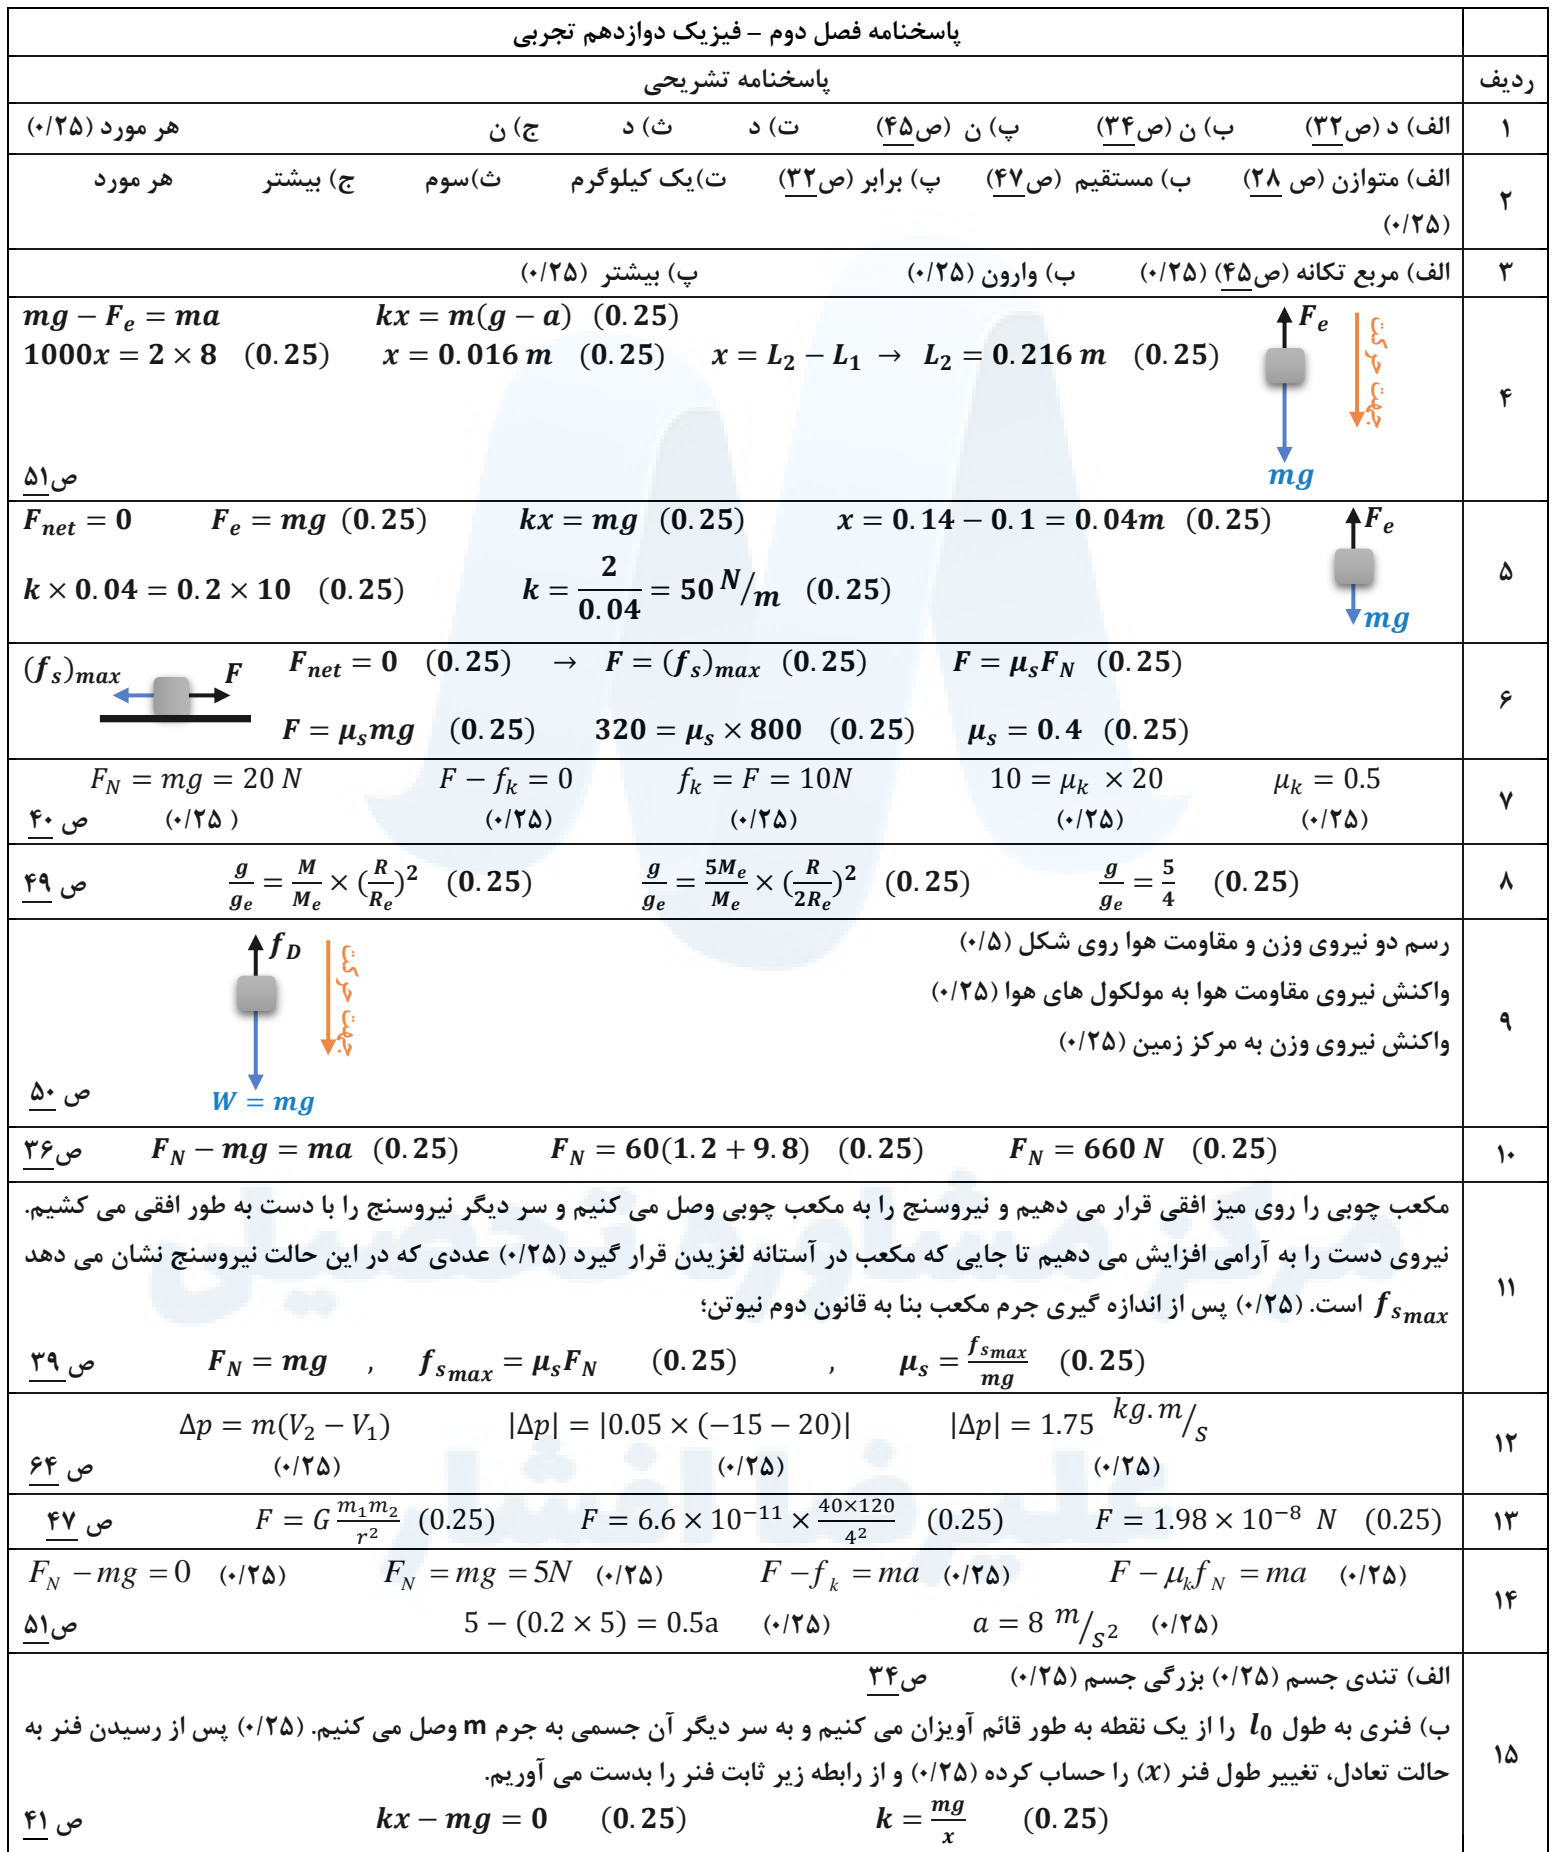 پاسخنامه فصل دوم – فیزیک دوازدهم تجربی
ردیف پاسخنامه تشریحی
۱ الف) د (ص۳۲) ب) ن (ص۳۴) پ) ن (ص۴۵) ت) د ث) د ج) ن هر مورد (۰/۲۵)
۲ الف) متوازن (ص ۲۸) ب) مستقیم (ص۴۷) پ) برابر (ص۳۲) ت)یک کیلوگرم ث)سوم ج) بیشتر هر مورد
(۰/۲۵)
۳ الف) مربع تکانه (ص۴۵) (۰/۲۵) ب) وارون (۰/۲۵) پ) بیشتر (۰/۲۵)
۴ mg − F_e = ma kx = m(g − a) (0.25)
1000x = 2 × 8 (0.25) x = 0.016 m (0.25) x = L₂ − L₁ → L₂ = 0.216 m (0.25)
F_e
جهت حرکت
mg
ص۵۱
۵ F_net = 0 F_e = mg (0.25) kx = mg (0.25) x = 0.14 − 0.1 = 0.04m (0.25)
F_e
k × 0.04 = 0.2 × 10 (0.25) k = 2/0.04 = 50 N/m (0.25)
mg
۶ (f_s)_max F F_net = 0 (0.25) → F = (f_s)_max (0.25) F = μ_s F_N (0.25)
F = μ_s mg (0.25) 320 = μ_s × 800 (0.25) μ_s = 0.4 (0.25)
۷ F_N = mg = 20 N F − f_k = 0 f_k = F = 10N 10 = μ_k × 20 μ_k = 0.5
ص ۴۰ (۰/۲۵ ) (۰/۲۵) (۰/۲۵) (۰/۲۵) (۰/۲۵)
۸ ص ۴۹ g/g_e = M/M_e × (R/R_e)² (0.25) g/g_e = 5M_e/M_e × (R/2R_e)² (0.25) g/g_e = 5/4 (0.25)
۹ رسم دو نیروی وزن و مقاومت هوا روی شکل (۰/۵)
واکنش نیروی مقاومت هوا به مولکول های هوا (۰/۲۵)
واکنش نیروی وزن به مرکز زمین (۰/۲۵)
f_D
جهت حرکت
W = mg
ص ۵۰
۱۰ ص۳۶ F_N − mg = ma (0.25) F_N = 60(1.2 + 9.8) (0.25) F_N = 660 N (0.25)
۱۱ مکعب چوبی را روی میز افقی قرار می دهیم و نیروسنج را به مکعب چوبی وصل می کنیم و سر دیگر نیروسنج را با دست به طور افقی می کشیم.
نیروی دست را به آرامی افزایش می دهیم تا جایی که مکعب در آستانه لغزیدن قرار گیرد (۰/۲۵) عددی که در این حالت نیروسنج نشان می دهد
f_smax است. (۰/۲۵) پس از اندازه گیری جرم مکعب بنا به قانون دوم نیوتن؛
ص ۳۹ F_N = mg , f_smax = μ_s F_N (0.25) , μ_s = f_smax/mg (0.25)
۱۲ Δp = m(V₂ − V₁) |Δp| = |0.05 × (−15 − 20)| |Δp| = 1.75 kg.m/s
ص ۶۴ (۰/۲۵) (۰/۲۵) (۰/۲۵)
۱۳ ص ۴۷ F = G m₁m₂/r² (0.25) F = 6.6 × 10⁻¹¹ × 40×120/4² (0.25) F = 1.98 × 10⁻⁸ N (0.25)
۱۴ F_N − mg = 0 (۰/۲۵) F_N = mg = 5N (۰/۲۵) F − f_k = ma (۰/۲۵) F − μ_k f_N = ma (۰/۲۵)
ص۵۱ 5 − (0.2 × 5) = 0.5a (۰/۲۵) a = 8 m/s² (۰/۲۵)
۱۵ الف) تندی جسم (۰/۲۵) بزرگی جسم (۰/۲۵) ص۳۴
ب) فنری به طول l₀ را از یک نقطه به طور قائم آویزان می کنیم و به سر دیگر آن جسمی به جرم m وصل می کنیم. (۰/۲۵) پس از رسیدن فنر به
حالت تعادل، تغییر طول فنر (x) را حساب کرده (۰/۲۵) و از رابطه زیر ثابت فنر را بدست می آوریم.
ص ۴۱ kx − mg = 0 (0.25) k = mg/x (0.25)
مرکز مشاوره تحصیلی
علیرضا افشار